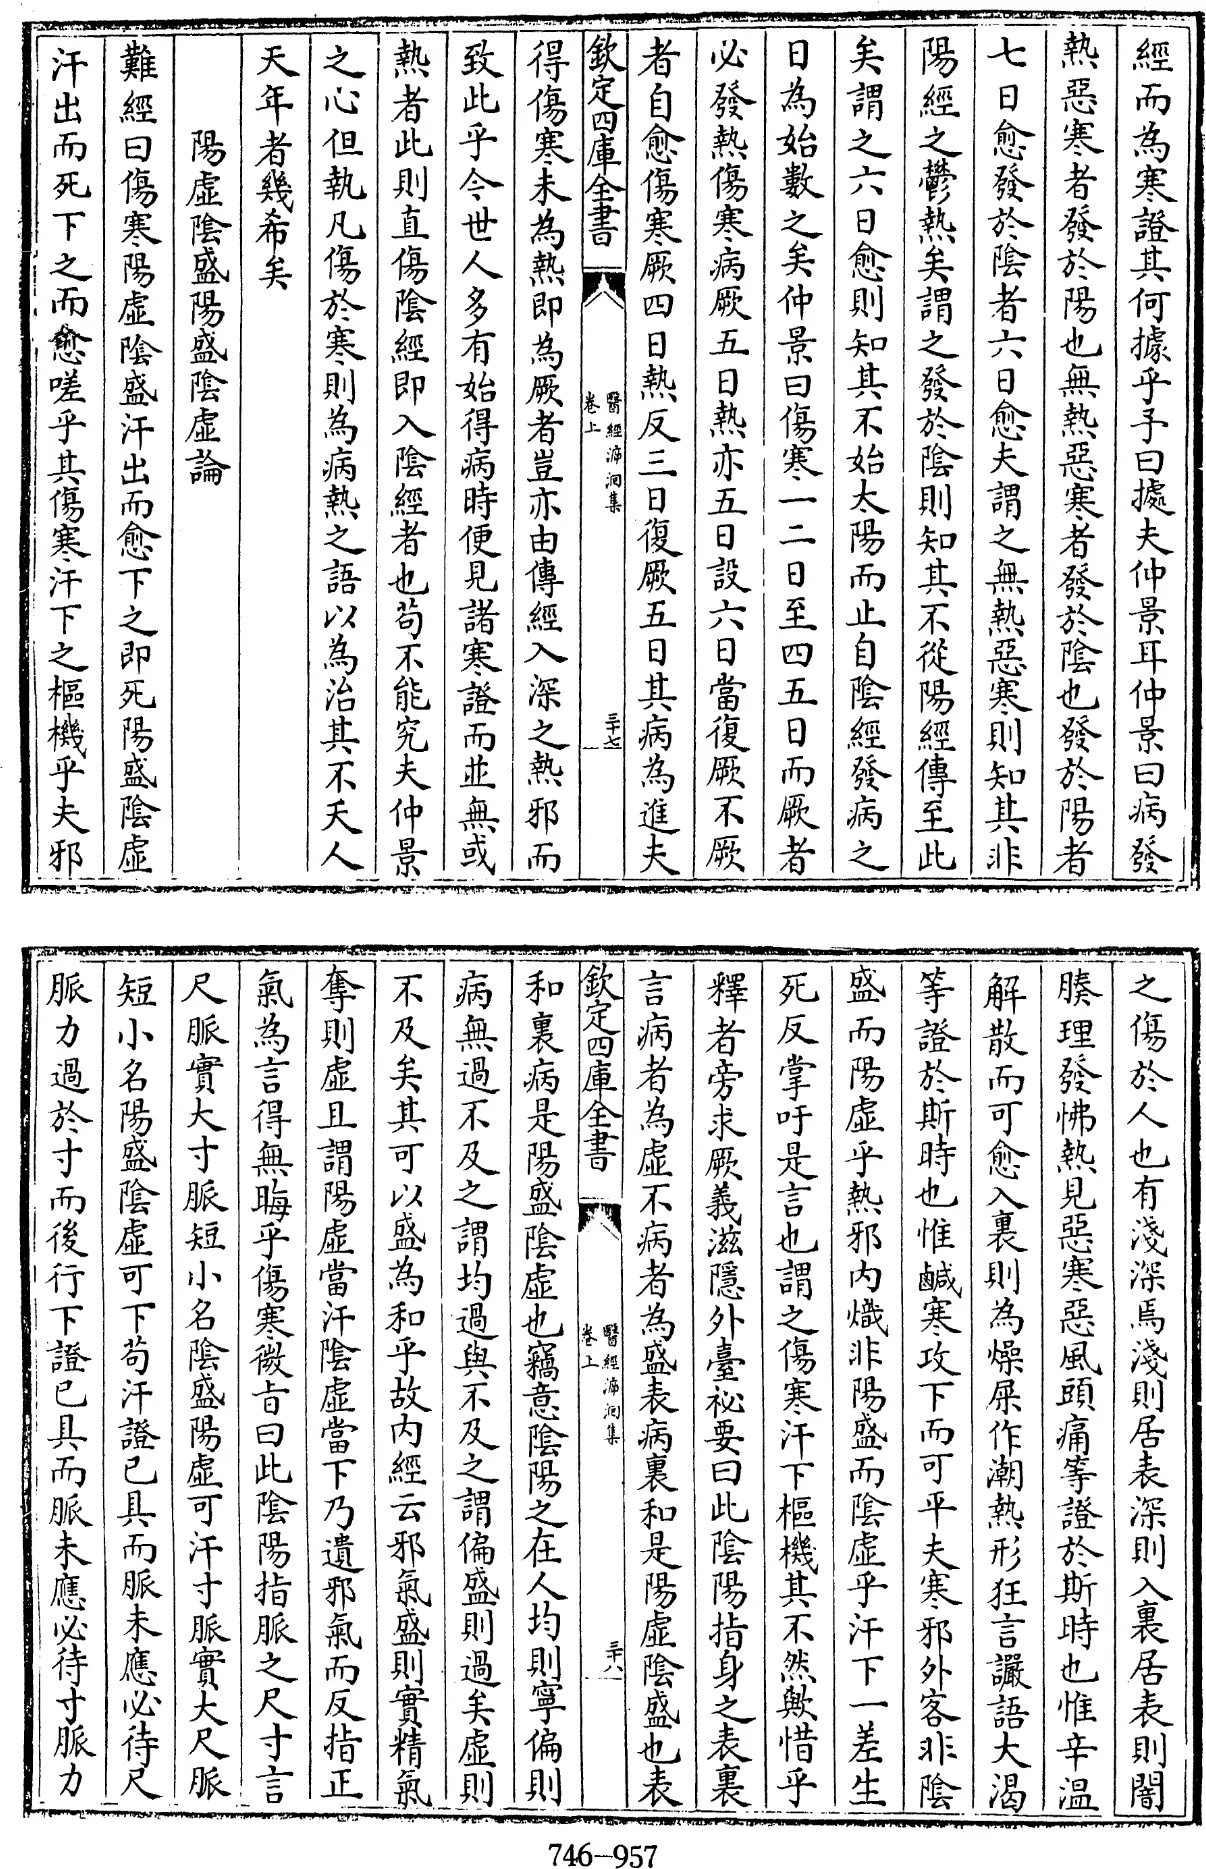 經而為寒證其何據乎予曰據夫仲景耳仲景曰病發
熱惡寒者發於陽也無熱惡寒者發於陰也發於陽者
七日愈發於陰者六日愈夫謂之無熱惡寒則知其非
陽經之鬱熱矣謂之發於陰則知其不從陽經傳至此
矣謂之六日愈則知其不始太陽而止自陰經發病之
日為始數之矣仲景曰傷寒一二日至四五日而厥者
必發熱傷寒病厥五日熱亦五日設六日當復厥不厥
者自愈傷寒厥四日熱反三日復厥五日其病為進夫
欽定四庫全書
醫經溯洄集
卷上
三十七
得傷寒未為熱即為厥者豈亦由傳經入深之熱邪而
致此乎今世人多有始得病時便見諸寒證而並無或
熱者此則直傷陰經即入陰經者也苟不能究夫仲景
之心但執凡傷於寒則為病熱之語以為治其不夭人
天年者幾希矣
陽虛陰盛陽盛陰虛論
難經曰傷寒陽虛陰盛汗出而愈下之即死陽盛陰虛
汗出而死下之而愈嗟乎其傷寒汗下之樞機乎夫邪
之傷於人也有淺深焉淺則居表深則入裏居表則閉
腠理發怫熱見惡寒惡風頭痛等證於斯時也惟辛溫
解散而可愈入裏則為燥屎作潮熱形狂言讝語大渴
等證於斯時也惟鹹寒攻下而可平夫寒邪外客非陰
盛而陽虛乎熱邪內熾非陽盛而陰虛乎汗下一差生
死反掌吁是言也謂之傷寒汗下樞機其不然歟惜乎
釋者旁求厥義滋隱外臺祕要曰此陰陽指身之表裏
言病者為虛不病者為盛表病裏和是陽虛陰盛也表
欽定四庫全書
醫經溯洄集
卷上
三十八
和裏病是陽盛陰虛也竊意陰陽之在人均則寧偏則
病無過不及之謂均過與不及之謂偏盛則過矣虛則
不及矣其可以盛為和乎故內經云邪氣盛則實精氣
奪則虛且謂陽虛當汗陰虛當下乃遺邪氣而反指正
氣為言得無晦乎傷寒微旨曰此陰陽指脈之尺寸言
尺脈實大寸脈短小名陰盛陽虛可汗寸脈實大尺脈
短小名陽盛陰虛可下苟汗證已具而脈未應必待尺
脈力過於寸而後行下證已具而脈未應必待寸脈力
746-957